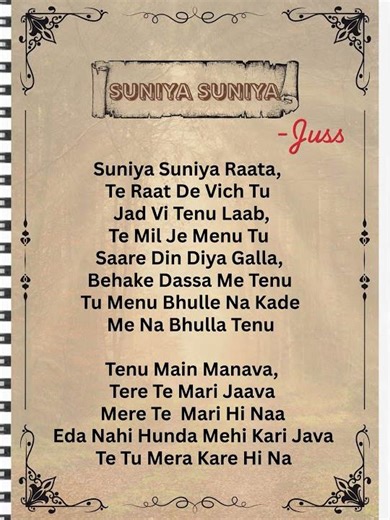 SUNIYA SUNIYA
-Juss
Suniya Suniya Raata,
Te Raat De Vich Tu
Jad Vi Tenu Laab,
Te Mil Je Menu Tu
Saare Din Diya Galla,
Behake Dassa Me Tenu
Tu Menu Bhulle Na Kade
Me Na Bhulla Tenu

Tenu Main Manava,
Tere Te Mari Jaava
Mere Te Mari Hi Naa
Eda Nahi Hunda Mehi Kari Java
Te Tu Mera Kare Hi Na